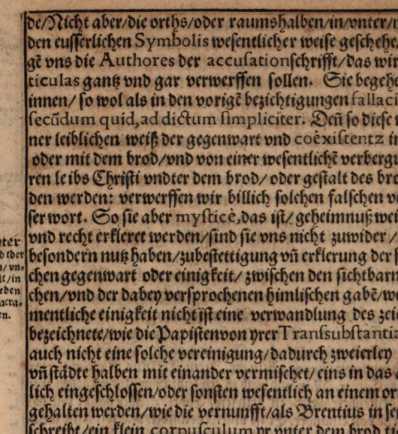 de/Nicht aber/die orths/oder raumshalben/in/vnter/
den eusserlichen Symbolis wesentlicher weise geschehe
gē vns die Authores der accusationschrifft/das wir
ticulas gantz vnd gar verwerffen sollen. Sie begehe
innen/ so wol als in den vorigē bezichtigungen fallaci
secūdum quid, ad dictum simpliciter. Deñ so diese
ner leiblichen weiß der gegenwart vnd coëxistentz i
oder mit dem brod/vnd von einer wesentlichē verbergu
ren leibs Christi vndter dem brod/ oder gestalt des bro
den werden: verwerffen wir billich solchen falschen v
ser wort. So sie aber mysticè,das ist/ geheimnuß wei
vnd recht erkleret werden/sind sie vns nicht zuwider /
besondern nutz haben/zubestettigung vñ erklerung der
chen gegenwart oder einigkeit/ zwischen den sichtbarn
chen/vnd der dabey versprochenen himlischen gabē/
mentliche einigkeit nicht ist eine verwandlung des zei
bezeichnete/wie die Papisten von yrer Transsubstantia
auch nicht eine solche vereinigung/dadurch zweierley
vñ städte halben mit einander vermischet/ eins in das
lich eingeschlossen/oder sonsten wesentlich an einem or
gehalten werden/wie die vernunfft/als Brentius in
schreibt/ein klein corpusculum vnter dem brod